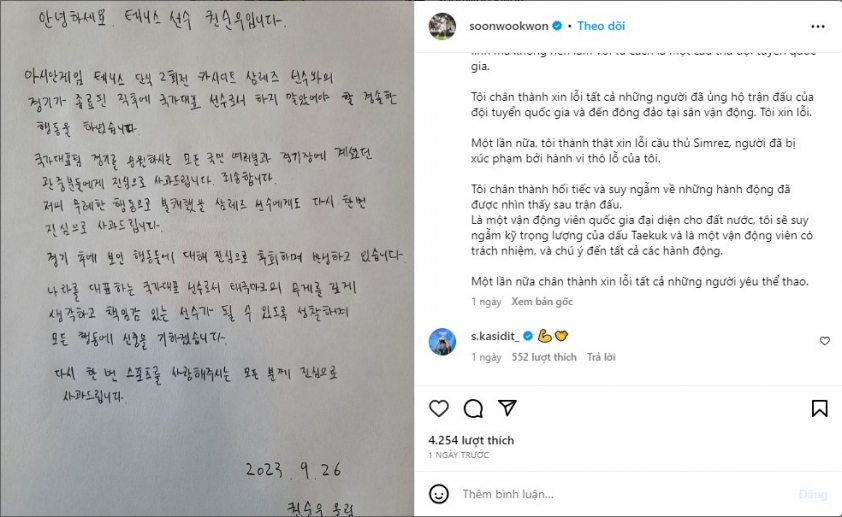 안녕하세요. 테니스 선수 권순우입니다.
아시안게임 테니스 단식 2회전 카시디트 삼레즈 선수와의
경기가 종료된 직후에 국가대표 선수로서 하지 말았어야 할 경솔한
행동을 하였습니다.
국가대표팀 경기를 응원하시는 모든 국민 여러분과 경기장에 계셨던
관중분들에게 진심으로 사과드립니다. 죄송합니다.
저의 무례한 행동으로 불쾌했을 삼레즈 선수에게도 다시 한번
진심으로 사과드립니다.
경기 후에 보인 행동들에 대해 진심으로 후회하며 반성하고 있습니다.
나라를 대표하는 국가대표 선수로서 태극마크의 무게를 깊게
생각하고 책임감 있는 선수가 될 수 있도록 성찰하며
모든 행동에 신중을 기하겠습니다.
다시 한 번 스포츠를 사랑해주시는 모든 분께 진심으로
사과드립니다.
2023. 9. 26
권순우 올림
soonwookwon • Theo dõi
gia.
Tôi chân thành xin lỗi tất cả những người đã ủng hộ trận đấu của
đội tuyển quốc gia và đến đông đảo tại sân vận động. Tôi xin lỗi.
Một lần nữa, tôi thành thật xin lỗi cầu thủ Simrez, người đã bị
xúc phạm bởi hành vi thô lỗ của tôi.
Tôi chân thành hối tiếc và suy ngẫm về những hành động đã
được nhìn thấy sau trận đấu.
Là một vận động viên quốc gia đại diện cho đất nước, tôi sẽ suy
ngẫm kỹ trọng lượng của dấu Taekuk và là một vận động viên có
trách nhiệm, và chú ý đến tất cả các hành động.
Một lần nữa chân thành xin lỗi tất cả những người yêu thể thao.
1 ngày Xem bản gốc
s.kasidit_
1 ngày 552 lượt thích Trả lời
4.254 lượt thích
1 NGÀY TRƯỚC
Thêm bình luận... Đăng